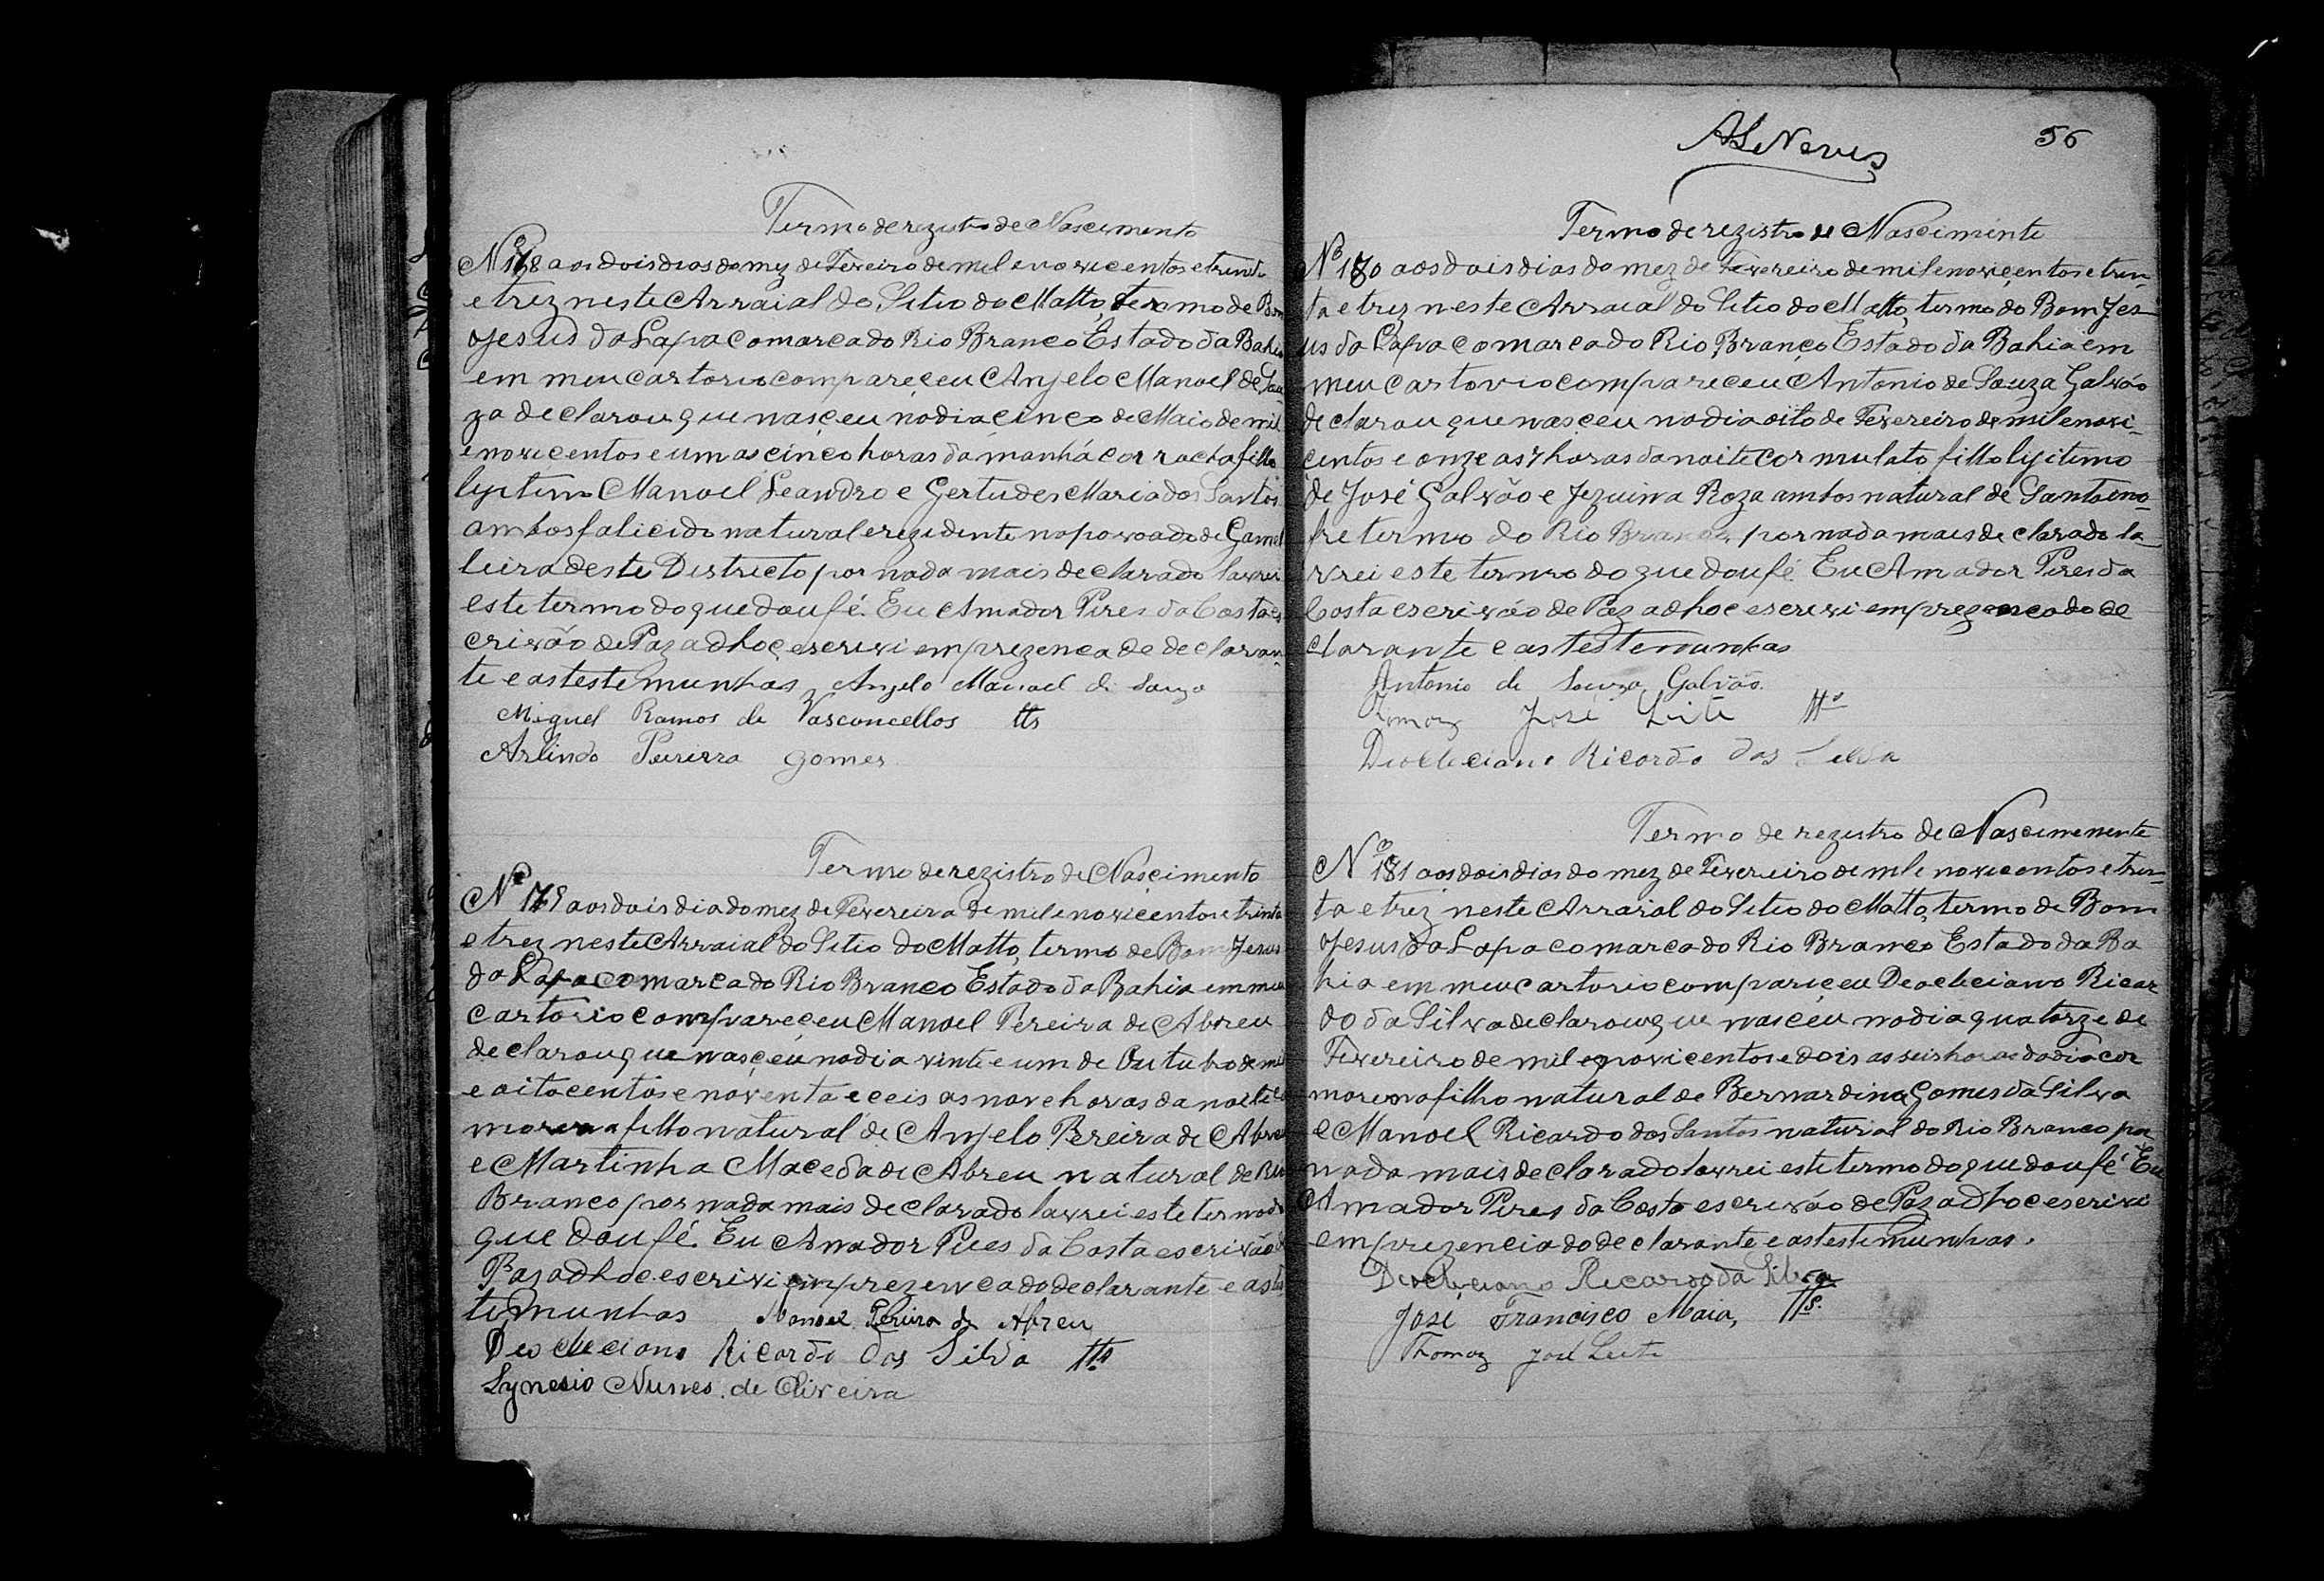 Termo de rezistro de Nascimento
Nº 178 aos dois dias do mez de Fevreiro de mil e novicentos e trinta
e trez neste Arraial do Sitio do Matto, termo de Bom
Jesus da Lapa comarca do Rio Branco Estado da Bahia
em meu cartorio compareçeu Anjelo Manoel de Sou
za declarou que nasçeu no dia cinco de Maio de mil
e novicentos e um as cinco horas da manhá cor rocha filho
lijitimo Manoel Leandro e Gertudes Maria dos Santos
ambos falicido natural e rezidente no povoado de Gamel
leira deste Districto por nada mais declarado lavrei
este termo do que dou fé. Eu Amador Pires da Costa es
crivão de Paz adhoc escrivi em prezenca de declaran
te e as testemunhas Angelo Manoel de Souza
Miguel Ramos de Vasconcellos tts
Arlindo Pereirra gomes
Termo de rezistro de Nasçimento
Nº 179 aos dois dia do mez de Fevereira de mil e novicentos e trinta
e trez neste Arraial do Sitio do Matto, termo de Bom Jesus
da Lapa comarca do Rio Branco Estado da Bahia em meu
cartorio compareçeu Manoel Pereira de Abreu
declarou que nasçeu no dia vinte e um de Outubro de mil
e oitocentos e noventa e ceis as nove horas da noite c
morena filho natural de Anjelo Pereira de Abreu
e Martinha Maceda de Abreu natural de Rio
Branco por nada mais declarado lavrei este termo do
que dou fé. Eu Amador Pires da Costa escrivão
Paz adhoc escrivi em prezenca do declarante e as tes
temunhas Manoel Pereira de Abreu
Deocleciano Ricardo das Silva tts
Synesio Nunes de Oliveira
ASNeves 56
Termo de rezistro de Nascimento
Nº 180 aos dois dias do mez de Fevereiro de mil e noviçentos e trin
ta e trez neste Arraial do Sitio do Matto, termo do Bom Jes
us da Lapa comarca do Rio Branço Estado da Bahia em
meu cartorio compareceu Antonio de Souza Galvão
declarou que nasçeu no dia oito de Fevereiro de mil e novi
centos e onze as 7 horas da noite cor mulato filho lijitimo
de José Galvão e Jezuina Roza ambos natural de Santo ono
fre termo do Rio Branco, por nada mais declarado la
vrei este termo do que dou fé. Eu Amador Pires da
Costa escrivão de Paz adhoc escrivi em prezenca do de
clarante e as testemunhas
Antonio de Souza Galvão
Tomaz José Leite tts
Deocleciano Ricardo das Silva
Termo de rezistro de Nascimemente
Nº 181 aos dois dias do mez de Fevereiro de mil e novicentos e trin
ta e trez neste Arraial do Sitio do Matto, termo de Bom
Jesus da Lapa comarca do Rio Branco Estado da Ba
hia em meu cartorio compariçeu Deocleciano Ricar
do da Silva declarou que nasçeu no dia quatorze de
Fevereiro de mil e novicentos e dois as seis horas do dia cor
morena filho natural de Bernardina Gomes da Silva
e Manoel Ricardo dos Santos natural do Rio Branco por
nada mais declarado lavrei este termo do que dou fé Eu
Amador Pires da Costa escrivão de Paz adhoc escrivi
em prezencia do declarante e as testemunhas.
Deocleciano Ricardo da Silva
José Francisco Maia, tts.
Thomaz José Leite